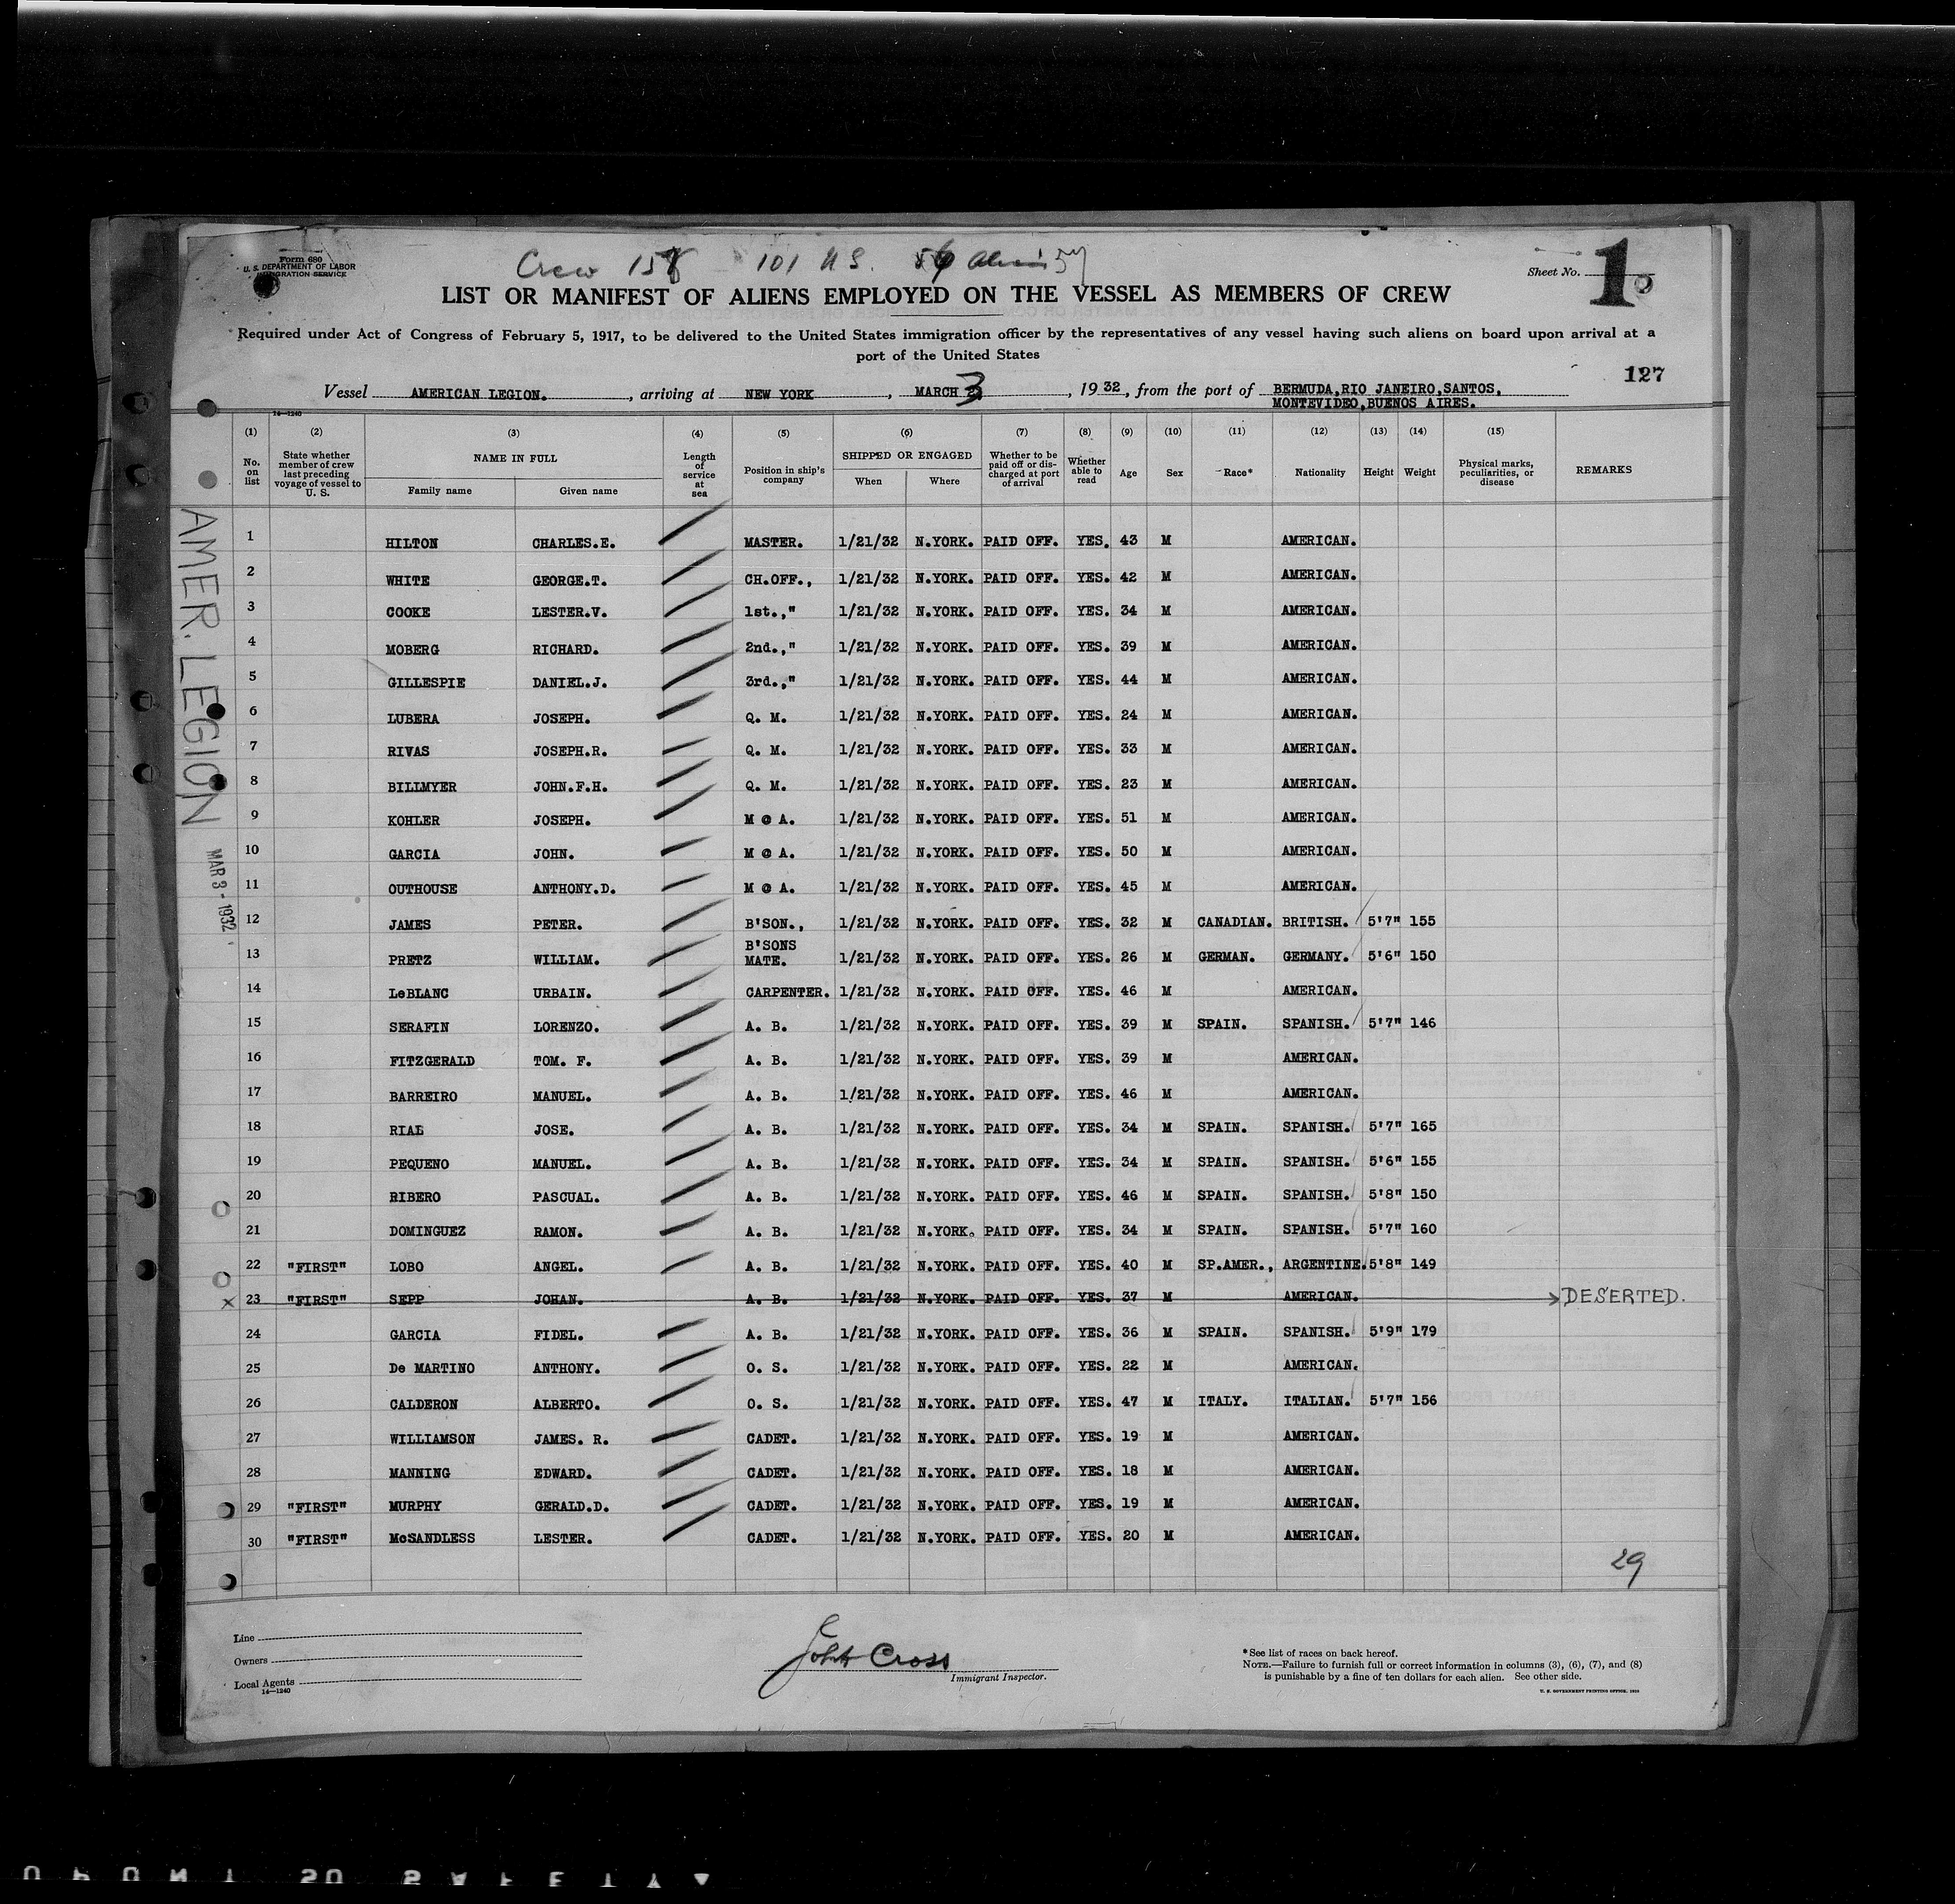 Form 680
U. S. DEPARTMENT OF LABOR
IMMIGRATION SERVICE
Crew 158 101 U.S. 57
Sheet No. 1
LIST OR MANIFEST OF ALIENS EMPLOYED ON THE VESSEL AS MEMBERS OF CREW
Required under Act of Congress of February 5, 1917, to be delivered to the United States immigration officer by the representatives of any vessel having such aliens on board upon arrival at a
port of the United States
127
Vessel AMERICAN LEGION. , arriving at NEW YORK , MARCH 3 , 19 32, from the port of BERMUDA,RIO JANEIRO,SANTOS,
MONTEVIDEO,BUENOS AIRES.
14—1240
(1) (2) (3) (4) (5) (6) (7) (8) (9) (10) (11) (12) (13) (14) (15)
No. on list State whether member of crew last preceding voyage of vessel to U. S. NAME IN FULL Family name Given name Length of service at sea Position in ship's company SHIPPED OR ENGAGED When Where Whether to be paid off or discharged at port of arrival Whether able to read Age Sex Race* Nationality Height Weight Physical marks, peculiarities, or disease REMARKS
AMER. LEGION
MAR 3 - 1932
1 HILTON CHARLES.E. MASTER. 1/21/32 N.YORK. PAID OFF. YES. 43 M AMERICAN.
2 WHITE GEORGE.T. CH.OFF., 1/21/32 N.YORK. PAID OFF. YES. 42 M AMERICAN.
3 COOKE LESTER.V. 1st.," 1/21/32 N.YORK. PAID OFF. YES. 34 M AMERICAN.
4 MOBERG RICHARD. 2nd.," 1/21/32 N.YORK. PAID OFF. YES. 39 M AMERICAN.
5 GILLESPIE DANIEL.J. 3rd.," 1/21/32 N.YORK. PAID OFF. YES. 44 M AMERICAN.
6 LUBERA JOSEPH. Q. M. 1/21/32 N.YORK. PAID OFF. YES. 24 M AMERICAN.
7 RIVAS JOSEPH.R. Q. M. 1/21/32 N.YORK. PAID OFF. YES. 33 M AMERICAN.
8 BILLMYER JOHN.F.H. Q. M. 1/21/32 N.YORK. PAID OFF. YES. 23 M AMERICAN.
9 KOHLER JOSEPH. M @ A. 1/21/32 N.YORK. PAID OFF. YES. 51 M AMERICAN.
10 GARCIA JOHN. M @ A. 1/21/32 N.YORK. PAID OFF. YES. 50 M AMERICAN.
11 OUTHOUSE ANTHONY.D. M @ A. 1/21/32 N.YORK. PAID OFF. YES. 45 M AMERICAN.
12 JAMES PETER. B'SON., 1/21/32 N.YORK. PAID OFF. YES. 32 M CANADIAN. BRITISH. 5'7" 155
13 PRETZ WILLIAM. B'SONS MATE. 1/21/32 N.YORK. PAID OFF. YES. 26 M GERMAN. GERMANY. 5'6" 150
14 LeBLANC URBAIN. CARPENTER. 1/21/32 N.YORK. PAID OFF. YES. 46 M AMERICAN.
15 SERAFIN LORENZO. A. B. 1/21/32 N.YORK. PAID OFF. YES. 39 M SPAIN. SPANISH. 5'7" 146
16 FITZGERALD TOM. F. A. B. 1/21/32 N.YORK. PAID OFF. YES. 39 M AMERICAN.
17 BARREIRO MANUEL. A. B. 1/21/32 N.YORK. PAID OFF. YES. 46 M AMERICAN.
18 RIAL JOSE. A. B. 1/21/32 N.YORK. PAID OFF. YES. 34 M SPAIN. SPANISH. 5'7" 165
19 PEQUENO MANUEL. A. B. 1/21/32 N.YORK. PAID OFF. YES. 34 M SPAIN. SPANISH. 5'6" 155
20 RIBERO PASCUAL. A. B. 1/21/32 N.YORK. PAID OFF. YES. 46 M SPAIN. SPANISH. 5'8" 150
21 DOMINGUEZ RAMON. A. B. 1/21/32 N.YORK. PAID OFF. YES. 34 M SPAIN. SPANISH. 5'7" 160
22 "FIRST" LOBO ANGEL. A. B. 1/21/32 N.YORK. PAID OFF. YES. 40 M SP.AMER., ARGENTINE. 5'8" 149
x 23 "FIRST" SEPP JOHAN. A. B. 1/21/32 N.YORK. PAID OFF. YES. 37 M AMERICAN. DESERTED.
24 GARCIA FIDEL. A. B. 1/21/32 N.YORK. PAID OFF. YES. 36 M SPAIN. SPANISH. 5'9" 179
25 De MARTINO ANTHONY. O. S. 1/21/32 N.YORK. PAID OFF. YES. 22 M AMERICAN.
26 CALDERON ALBERTO. O. S. 1/21/32 N.YORK. PAID OFF. YES. 47 M ITALY. ITALIAN. 5'7" 156
27 WILLIAMSON JAMES. R. CADET. 1/21/32 N.YORK. PAID OFF. YES. 19 M AMERICAN.
28 MANNING EDWARD. CADET. 1/21/32 N.YORK. PAID OFF. YES. 18 M AMERICAN.
29 "FIRST" MURPHY GERALD.D. CADET. 1/21/32 N.YORK. PAID OFF. YES. 19 M AMERICAN.
30 "FIRST" McSANDLESS LESTER. CADET. 1/21/32 N.YORK. PAID OFF. YES. 20 M AMERICAN.
29
Line
Owners
Local Agents
14—1240
John Cross
Immigrant Inspector.
*See list of races on back hereof.
NOTE.—Failure to furnish full or correct information in columns (3), (6), (7), and (8)
is punishable by a fine of ten dollars for each alien. See other side.
U. S. GOVERNMENT PRINTING OFFICE